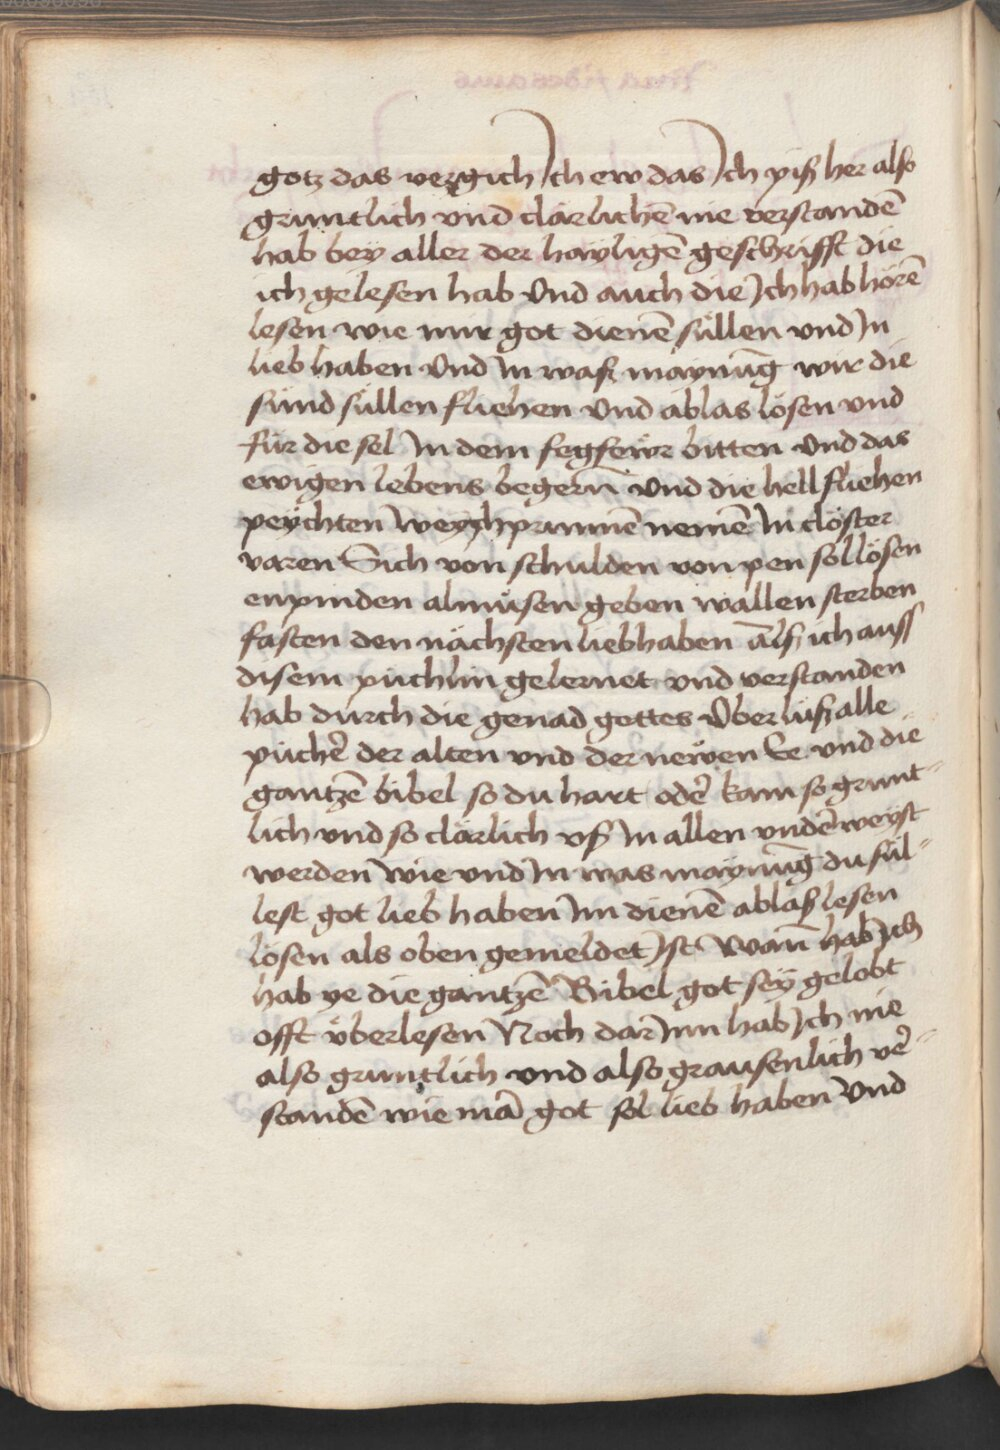 gotz das vergich Ich ew das Ich piß her also
gruntlich vnd clärlichē nie verstandē
hab bey aller der hayligē geschrifft die
ich gelesen hab Vnd auch die Ich hab hörē
lesen wie mir got dienē süllen vnd In
lieb haben Vnd In waß maynūg wir die
sünd süllen fliehen Vnd ablas lösen vnd
für die sel In dem fegfewr bitten Vnd das
ewigen lebens begern Vnd die hell fliehen
peychten weychprunnē nemē In clöster
varen Sich von schulden von pen sol lösen
enpinden almüsen geben wallen sterben
fasten den nächsten liebhaben alß ich auss
disem püchlin gelernet vnd verstanden
hab durch die genad gottes Vberliiß alle
püchē der alten vnd der newen Ee vnd die
gantzē bibel so du hart odē kam so grunt-
lich vnd so clärlich vß In allen vndērweyst
werden wie vnd In was maynūg du sül-
lest got lieb haben Im dienē ablaß lesen
lösen als oben gemeldet Ist Wañ hab Ich
hab ye die gantzē Bibel got sey gelobt
offt vberlesen Noch dar Inn hab Ich nie
also gruntlich vnd also grausenlich vē-
standē wie mā got sol lieb haben Vnd